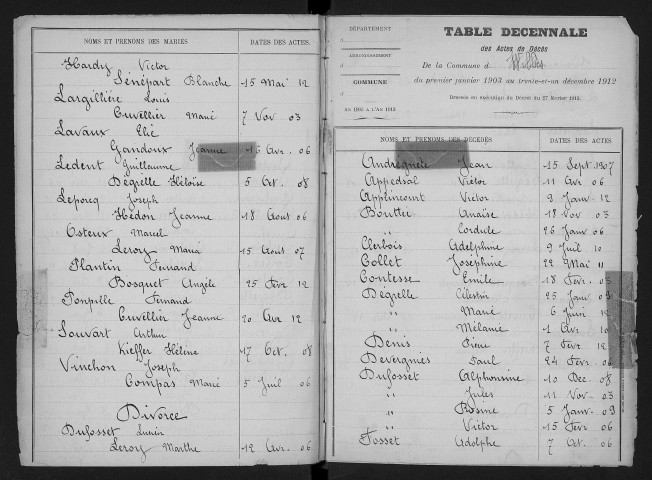 NOMS ET PRENOMS DES MARIÉS DATES DES ACTES.
Hardy Victor
Sénépart Blanche 15 Mai 12
Largillière Louis
Cuvellier Marié 7 Nov 03
Lavaux Elie
Gandoux Jeanne 16 Avr. 06
Ledent Guillaume
Dégrelle Héloïse 5 Oct. 08
Lepocq Joseph
Hédon Jeanne 18 Août 06
Osteux Marcel
Leroy Maria 15 Août 07
Plantin Fernand
Bosquet Angèle 25 Fév 12
Fernand
Cuvellier Jeanne 20 Avr 12
Souvart Arthur
Kieffer Hélène 17 Oct. 08
Vinchon Joseph
Compas Marié 5 Juil 06
Divorce
Dufosset Lucien
Leroy Marthe 12 Avr. 06
DÉPARTEMENT
ARRONDISSEMENT
COMMUNE
AN 1903 A L'AN 1912
TABLE DECENNALE
des Actes de Décès
De la Commune d
du premier janvier 1903 au trente-et-un décembre 1912
Dressée en exécution du Décret du 27 février 1913.
NOMS ET PRENOMS DES DÉCÉDÉS DATES DES ACTES.
Jean 15 Sept. 1907
Appedsal Victor 11 Avr 06
Applincourt Victor 9 Janv 12
Bouttei Anaïse 18 Nov 03
" Cordule 26 Janv 06
Clerbois Adelphine 9 Juil 10
Collet Joséphine 22 Mai 11
Contesse Emile 18 Fév. 03
Dégrelle Célestin 25 Janv 09
" Marié 6 Juin 12
" Mélanie 1 Avr 10
Denis Pierre 7 Fév. 12
Devergnies Paul 24 Fév. 06
Dufosset Alphonsine 10 Déc. 08
" Jules 11 Nov. 03
" Rosine 5 Janv. 09
" Victor 15 Fév 06
Fosset Adolphe 7 Oct. 06